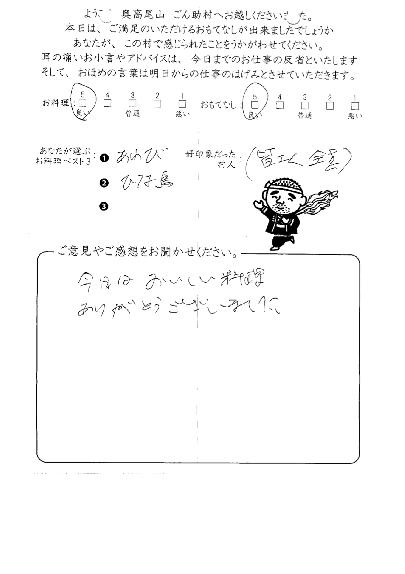 ようこ 奥高尾山 ごん助村へお越しくださいました。
本日は、ご満足のいただけるおもてなしが出来ましたでしょうか
あなたが、この村で感じられたことをうかがわせてください。
耳の痛いお小言やアドバイスは、今日までのお仕事の反省といたします
そして、おほめの言葉は明日からの仕事のはげみとさせていただきます。
お料理: 5 4 3 2 1 おもてなし: 5 4 3 2 1
良い 普通 悪い 良い 普通 悪い
あなたが選ぶ、
お料理ベスト3: ❶ あわび 好印象だった
お人: (皆さん 全員)
❷ ひな鳥
❸
ご意見やご感想をお聞かせください。
今日は おいしい 料理
ありがとうございました